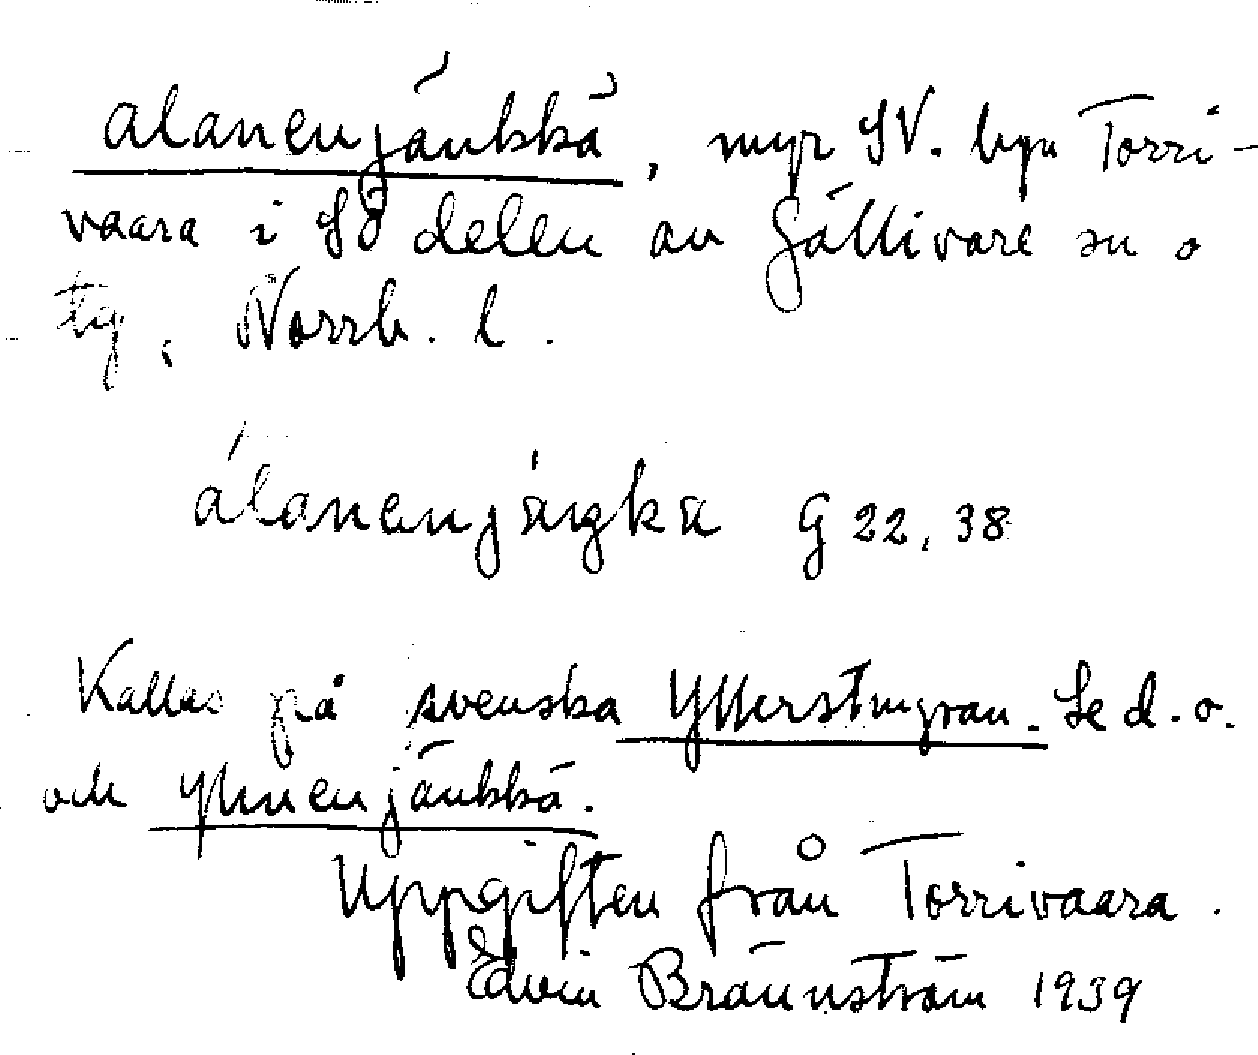 alanenjänkkä, myr SV. byn Torri-
vaara i SÖ delen av Gällivare sn o
tg, Norrb. l.
álanenjäŋkä G 22, 38
Kallas på svenska Ytterstmyran. Se d. o.
och ylinenjänkkä.
Uppgiften från Torrivaara.
Edvin Brännström 1939